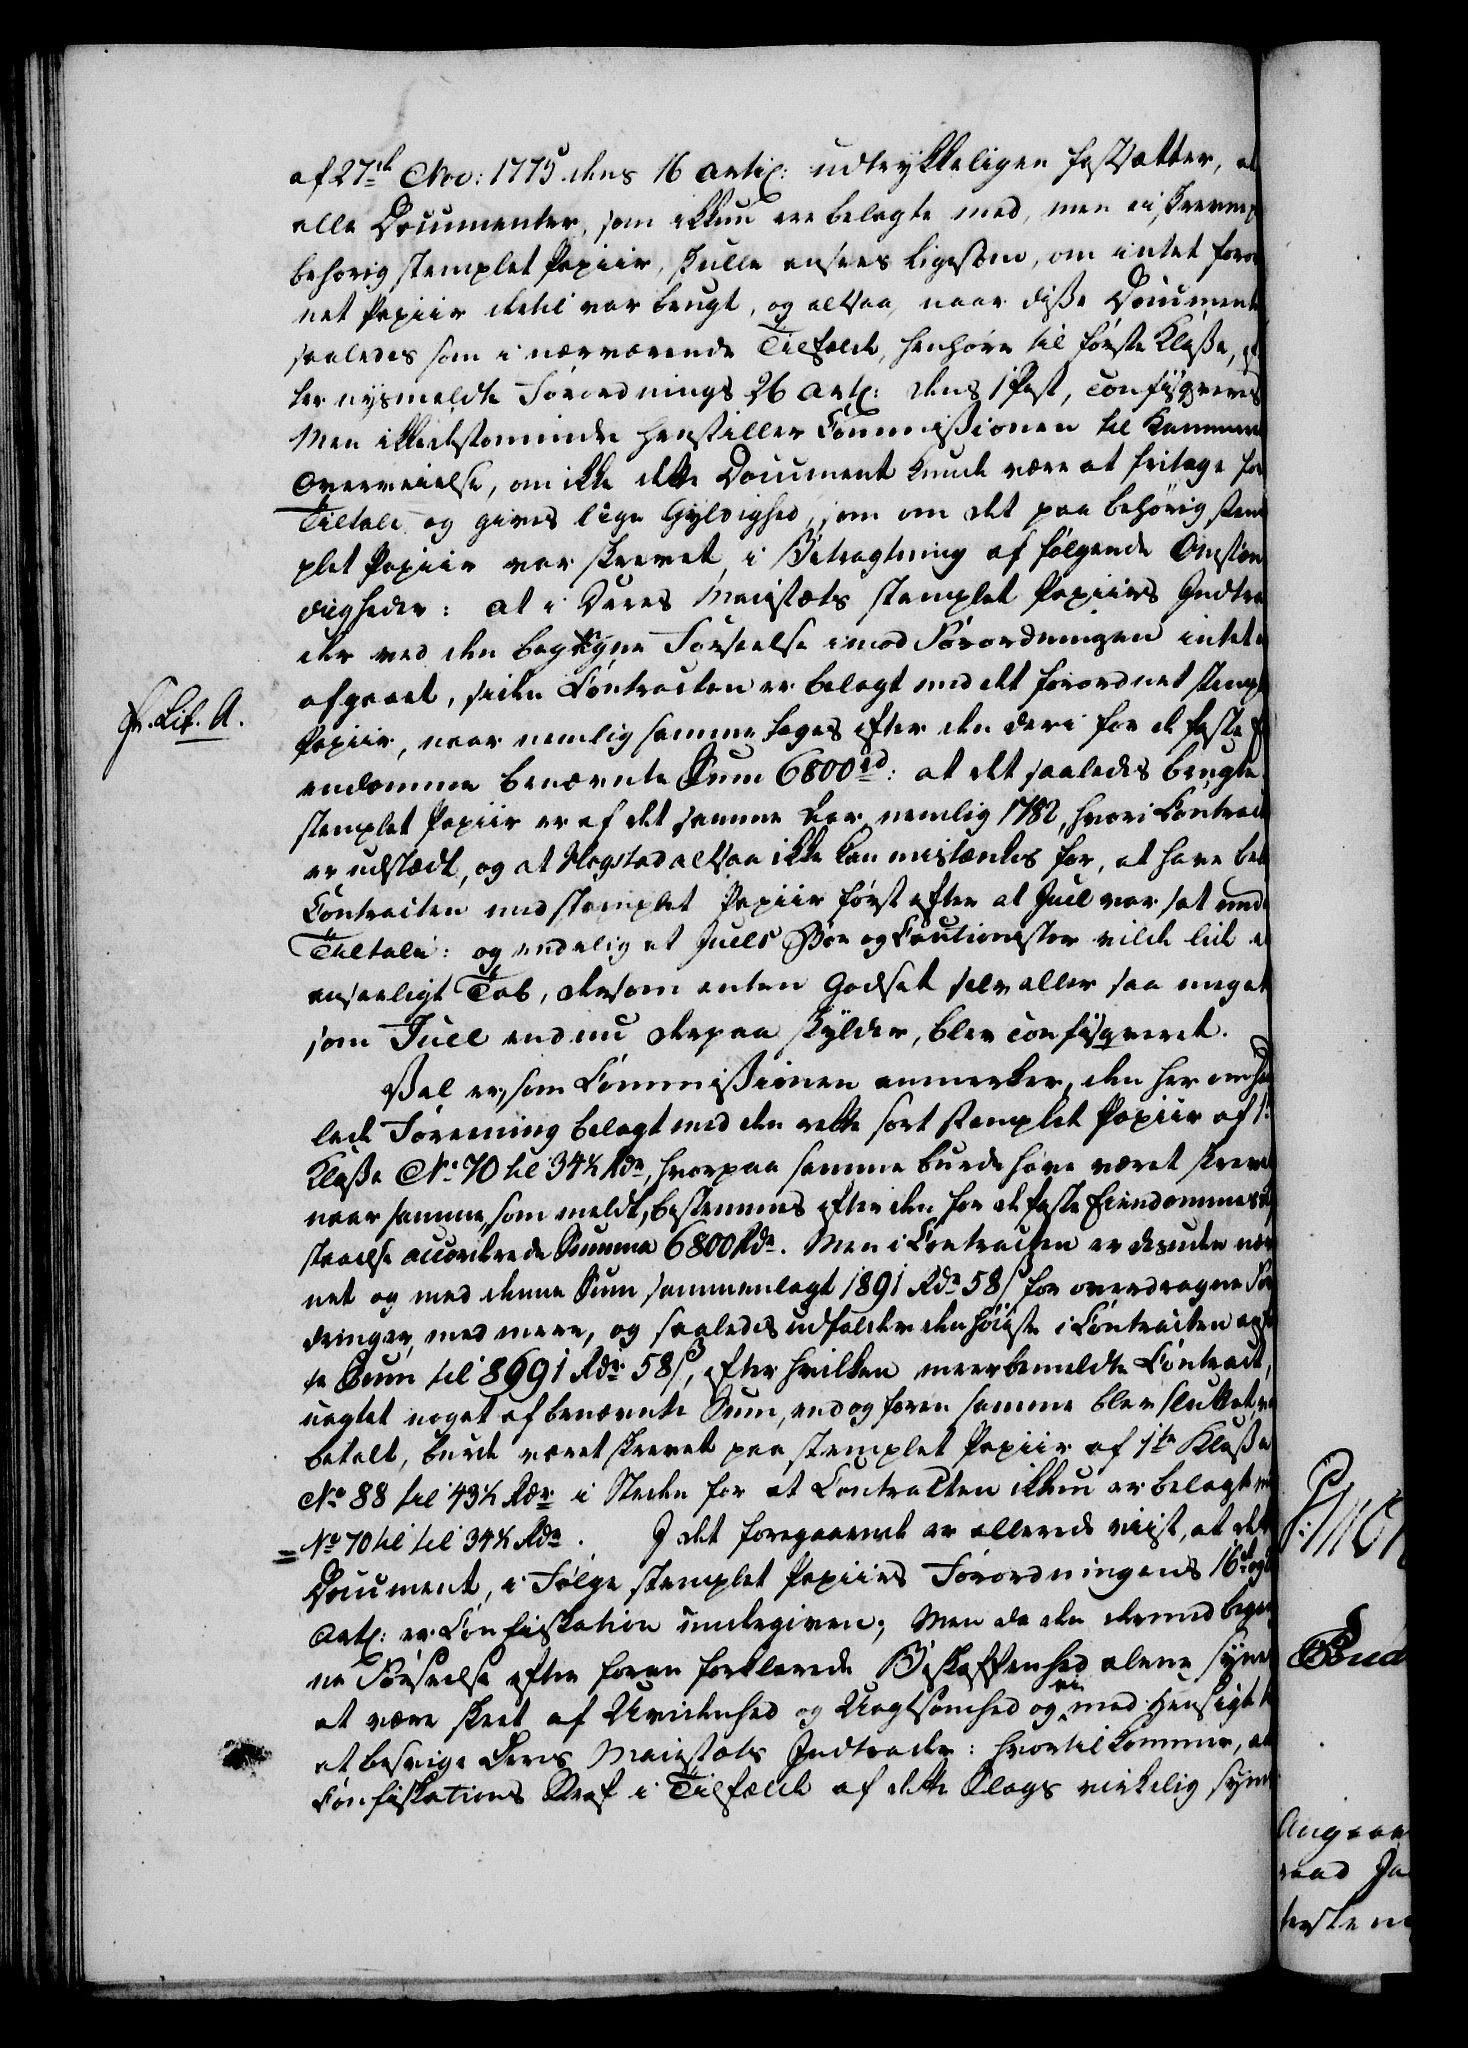 af 27de Nov: 1775 dens 16 Artic: udtrykkeligen fastsætter, at
alle Documenter, som ikkun ere belagte med, men ei skrevne p
behørig stemplet Papiir, skulle ansees ligesom, om intet foror
net Papiir dertil var brugt, og altsaa, naar disse Document
saaledes som i nærværende Tilfælde, henhøre til første Klasse, ef
ter nysmeldte Forordnings 26 Art: dens 1 Post, confisqveres
Men ikkedestomindre henstiller Commissionen til Kammere
Overveielse, om ikke dette Document kunde være at fritage for
Tiltale og gives lige Gyldighed, som om det paa behørig stem
plet Papiir var skrevet, i Betragtning af følgende Omstæn
digheder: at i Deres Majestæts stemplet Papiirs Indtra
der ved den begangne Forseelse imod Forordningen intet
afgaaet, siden Contracten er belagt med det forordnet stempl
Fr. Lit. A.
Papiir, naar nemlig samme tages efter den deri for de faste E
endomme benævnte Sum 6800rd: at det saaledes brugte
stemplet Papiir er af det samme Aar, nemlig 1782, hvori Contract
er udstædt, og at Rogstad altsaa ikke kan mistænkes for, at have bel
Contracten med stemplet Papiir først efter at Juel var sat und
Tiltale: og endelig at Juels Boe og Cautionister vilde lide e
anseeligt Tab, dersom enten Godset selv eller saa meget
som Juel endnu derpaa skylder, blev confisqveret.
Vel er, som Commissionen anmerker, den her omha
lede Forening belagt med den rette sort stemplet Papiir af 1:
Klasse No 70 til 34½ Rdr, hvorpaa samme burde have været skreve
naar samme, som meldt, bestemmes efter den for de faste Eiendommes Af
staaelse accorderede Summa 6800 Rdr. Men i Contracten er desuden næv
net og med denne Sum sammenlagt 1891 Rdr 58 ß for overdragne For
dringer, med mere, og saaledes udfalder den høieste i Contracten anfø
te Sum til 8691 Rdr 58 ß, efter hvilken meerbemeldte Contract,
uagtet noget af benævnte Sum, endog foren samme blev sluttet, va
betalt, burde været skrevet paa stemplet Papiir af 1te Klasse
No 88 til 43½ Rdr i Steden for at Contracten ikkun er belagt m
= No 70 til til 34½ Rdr. I det foregaaende er allerede viist, at det
Document, i Følge stemplet Papiirs Forordningens 16de og
Art: er Confiskation undergiven; Men da den dermed began
ne Forseelse efter foran forklarede Beskaffenhed alene syne
at være skeet af Uvidenhed og Uagtsomhed og ei med Hensigt t
at besvige Deres Majestæts Indtrader: hvortil kommer, at
Confiskations Straf i Tilfælde af dette Slags virkelig syne